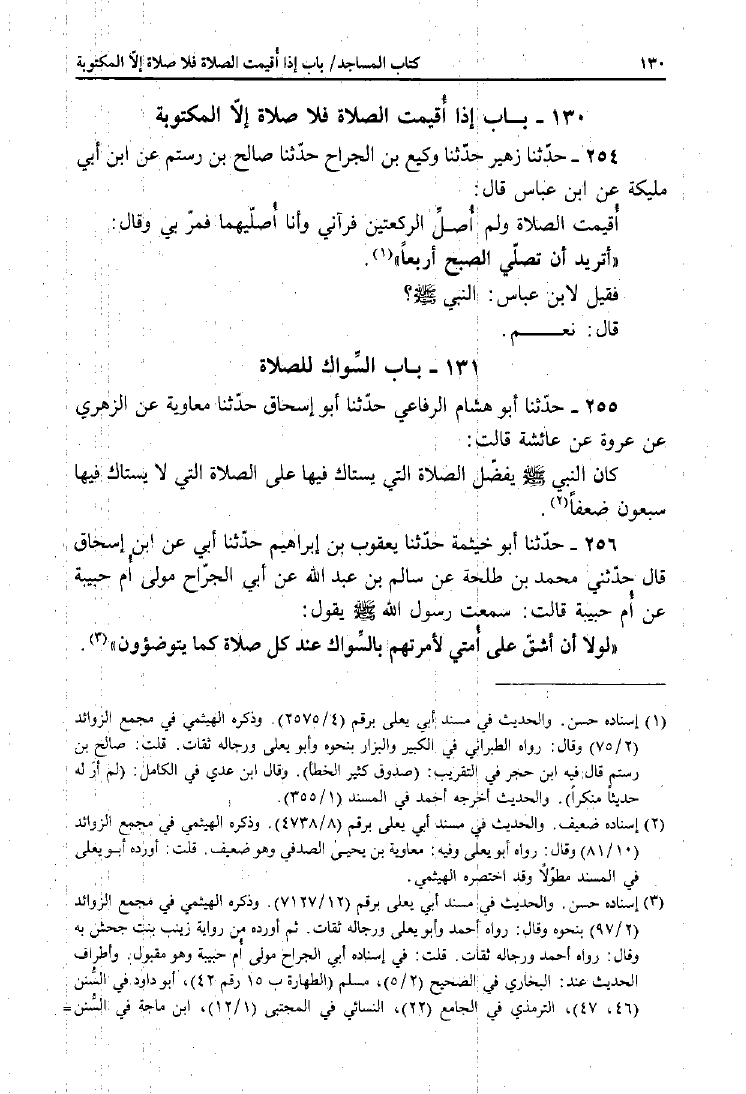 ١٣٠ كتاب المساجد/ باب إذا أُقيمت الصلاة فلا صلاة إلّا المكتوبة
١٣٠ ـ بـــاب إذا أُقيمت الصلاة فلا صلاة إلّا المكتوبة
٢٥٤ ـ حدّثنا زهير حدّثنا وكيع بن الجراح حدّثنا صالح بن رستم عن ابن أبي
مليكة عن ابن عباس قال:
أُقيمت الصلاة ولم أُصلِّ الركعتين فرآني وأنا أُصلّيهما فمرّ بي وقال:
«أتريد أن تصلّي الصبح أربعاً»(١).
فقيل لابن عباس: النبي ﷺ؟
قال: نعـــــم.
١٣١ ـ بــاب السِّواك للصلاة
٢٥٥ ـ حدّثنا أبو هشام الرفاعي حدّثنا أبو إسحاق حدّثنا معاوية عن الزهري
عن عروة عن عائشة قالت:
كان النبي ﷺ يفضّل الصلاة التي يستاك فيها على الصلاة التي لا يستاك فيها
سبعون ضعفاً(٢).
٢٥٦ ـ حدّثنا أبو خيثمة حدّثنا يعقوب بن إبراهيم حدّثنا أبي عن ابن إسحاق
قال حدّثني محمد بن طلحة عن سالم بن عبد الله عن أبي الجرّاح مولى أُم حبيبة
عن أُم حبيبة قالت: سمعت رسول الله ﷺ يقول:
«لولا أن أشقّ على أُمتي لأمرتهم بالسِّواك عند كل صلاة كما يتوضؤون»(٣).
(١) إسناده حسن. والحديث في مسند أبي يعلى برقم (٢٥٧٥/٤). وذكره الهيثمي في مجمع الزوائد
(٧٥/٢) وقال: رواه الطبراني في الكبير والبزار بنحوه وأبو يعلى ورجاله ثقات. قلت: صالح بن
رستم قال فيه ابن حجر في التقريب: (صدوق كثير الخطأ). وقال ابن عدي في الكامل: (لم أرَ له
حديثاً منكراً). والحديث أخرجه أحمد في المسند (٣٥٥/١).
(٢) إسناده ضعيف. والحديث في مسند أبي يعلى برقم (٤٧٣٨/٨). وذكره الهيثمي في مجمع الزوائد
(٨١/١٠) وقال: رواه أبو يعلى وفيه: معاوية بن يحيىٰ الصدفي وهو ضعيف. قلت: أورده أبـو يعلى
في المسند مطوّلًا وقد اختصره الهيثمي.
(٣) إسناده حسن. والحديث في مسند أبي يعلى برقم (٧١٢٧/١٢). وذكره الهيثمي في مجمع الزوائد
(٩٧/٢) بنحوه وقال: رواه أحمد وأبو يعلى ورجاله ثقات. ثم أورده من رواية زينب بنت جحش به
وقال: رواه أحمد ورجاله ثقات. قلت: في إسناده أبي الجراح مولى أُم حبيبة وهو مقبول. وأطراف
الحديث عند: البخاري في الصحيح (٥/٢)، مسلم (الطهارة ب ١٥ رقم ٤٢)، أبو داود في السُّنن
(٤٦، ٤٧)، الترمذي في الجامع (٢٢)، النسائي في المجتبى (١٢/١)، ابن ماجة في السُّنن=